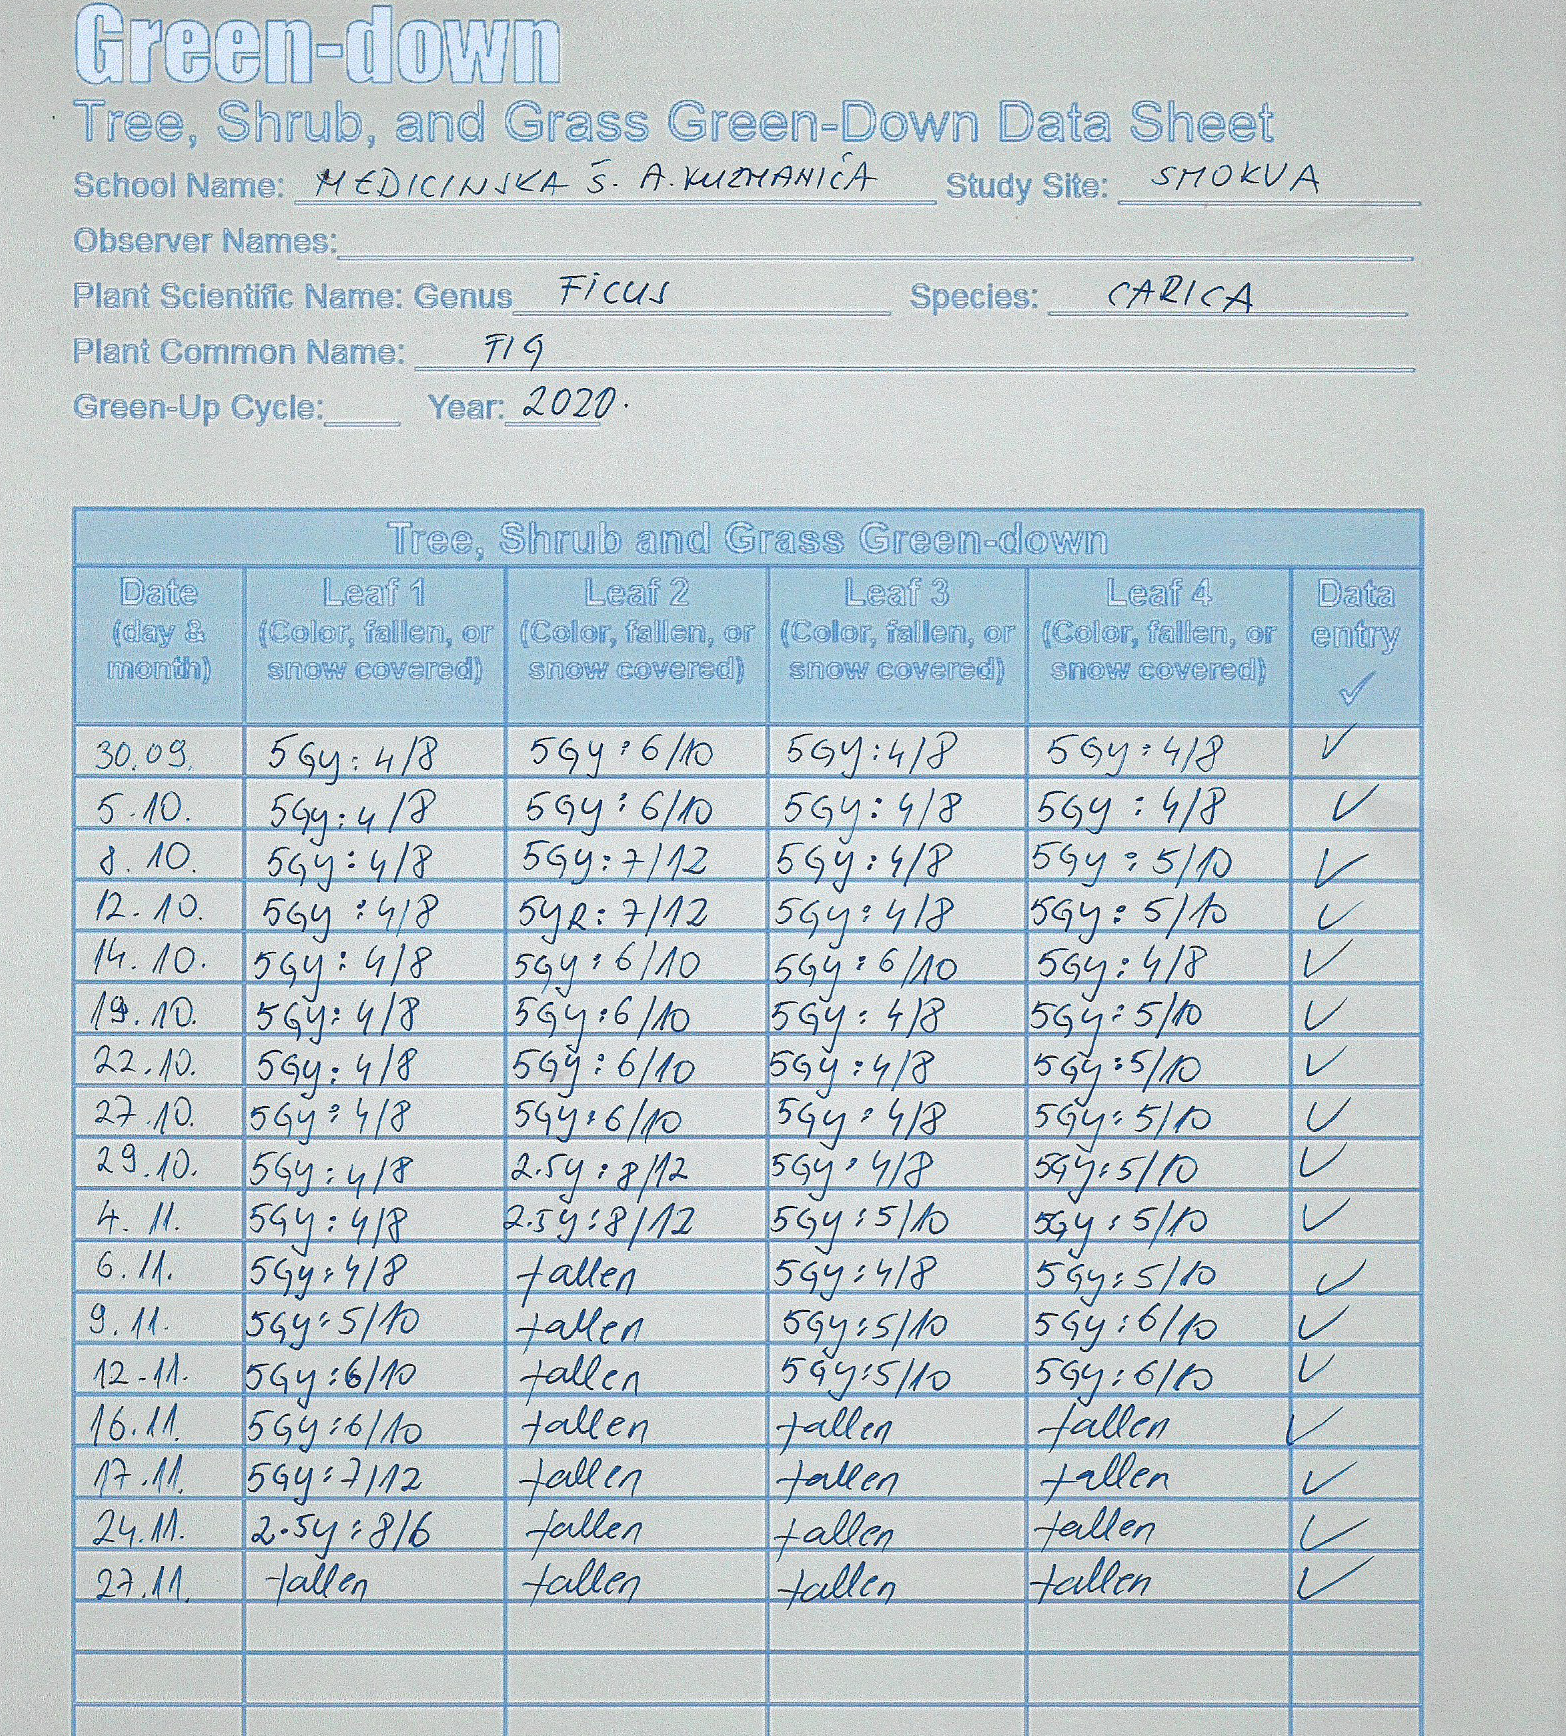 Green-down
Tree, Shrub, and Grass Green-Down Data Sheet
School Name: MEDICINSKA Š. A. KUZMANIĆA Study Site: SMOKVA
Observer Names:
Plant Scientific Name: Genus FICUS Species: CARICA
Plant Common Name: FIG
Green-Up Cycle: Year: 2020.
Tree, Shrub and Grass Green-down
Date (day & month) Leaf 1 (Color, fallen, or snow covered) Leaf 2 (Color, fallen, or snow covered) Leaf 3 (Color, fallen, or snow covered) Leaf 4 (Color, fallen, or snow covered) Data entry ✓
30.09. 5Gy:4/8 5Gy:6/10 5Gy:4/8 5Gy:4/8 ✓
5.10. 5Gy:4/8 5Gy:6/10 5Gy:4/8 5Gy:4/8 ✓
8.10. 5Gy:4/8 5Gy:7/12 5Gy:4/8 5Gy:5/10 ✓
12.10. 5Gy:4/8 5yR:7/12 5Gy:4/8 5Gy:5/10 ✓
14.10. 5Gy:4/8 5Gy:6/10 5Gy:6/10 5Gy:4/8 ✓
19.10. 5Gy:4/8 5Gy:6/10 5Gy:4/8 5Gy:5/10 ✓
22.10. 5Gy:4/8 5Gy:6/10 5Gy:4/8 5Gy:5/10 ✓
27.10. 5Gy:4/8 5Gy:6/10 5Gy:4/8 5Gy:5/10 ✓
29.10. 5Gy:4/8 2.5y:8/12 5Gy:4/8 5Gy:5/10 ✓
4.11. 5Gy:4/8 2.5y:8/12 5Gy:5/10 5Gy:5/10 ✓
6.11. 5Gy:4/8 fallen 5Gy:4/8 5Gy:5/10 ✓
9.11. 5Gy:5/10 fallen 5Gy:5/10 5Gy:6/10 ✓
12.11. 5Gy:6/10 fallen 5Gy:5/10 5Gy:6/10 ✓
16.11. 5Gy:6/10 fallen fallen fallen ✓
17.11. 5Gy:7/12 fallen fallen fallen ✓
24.11. 2.5y:8/6 fallen fallen fallen ✓
27.11. fallen fallen fallen fallen ✓